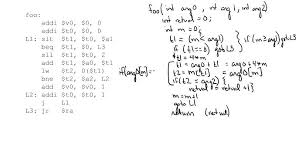 foo:
addi $v0, $0, 0
addi $t0, $0, 0
L1: slt $t1, $t0, $a1
beq $t1, $0, L3
sll $t1, $t0, 2
add $t1, $a0, $t1
lw $t2, 0($t1)
bne $t2, $a2, L2
addi $v0, $v0, 1
L2: addi $t0, $t0, 1
j L1
L3: jr $ra
foo(int arg0, int arg1, int arg2)
int retval = 0;
int m = 0;
t1 = (m < arg1)
if (t1==0) goto L3
t1 = 4*m
t1 = arg0 + t1 = arg0 + 4*m
t2 = M[t1] = arg0[m]
if (t2 = arg2) {
retval = retval + 1}
m = m+1
goto L1
return (retval)